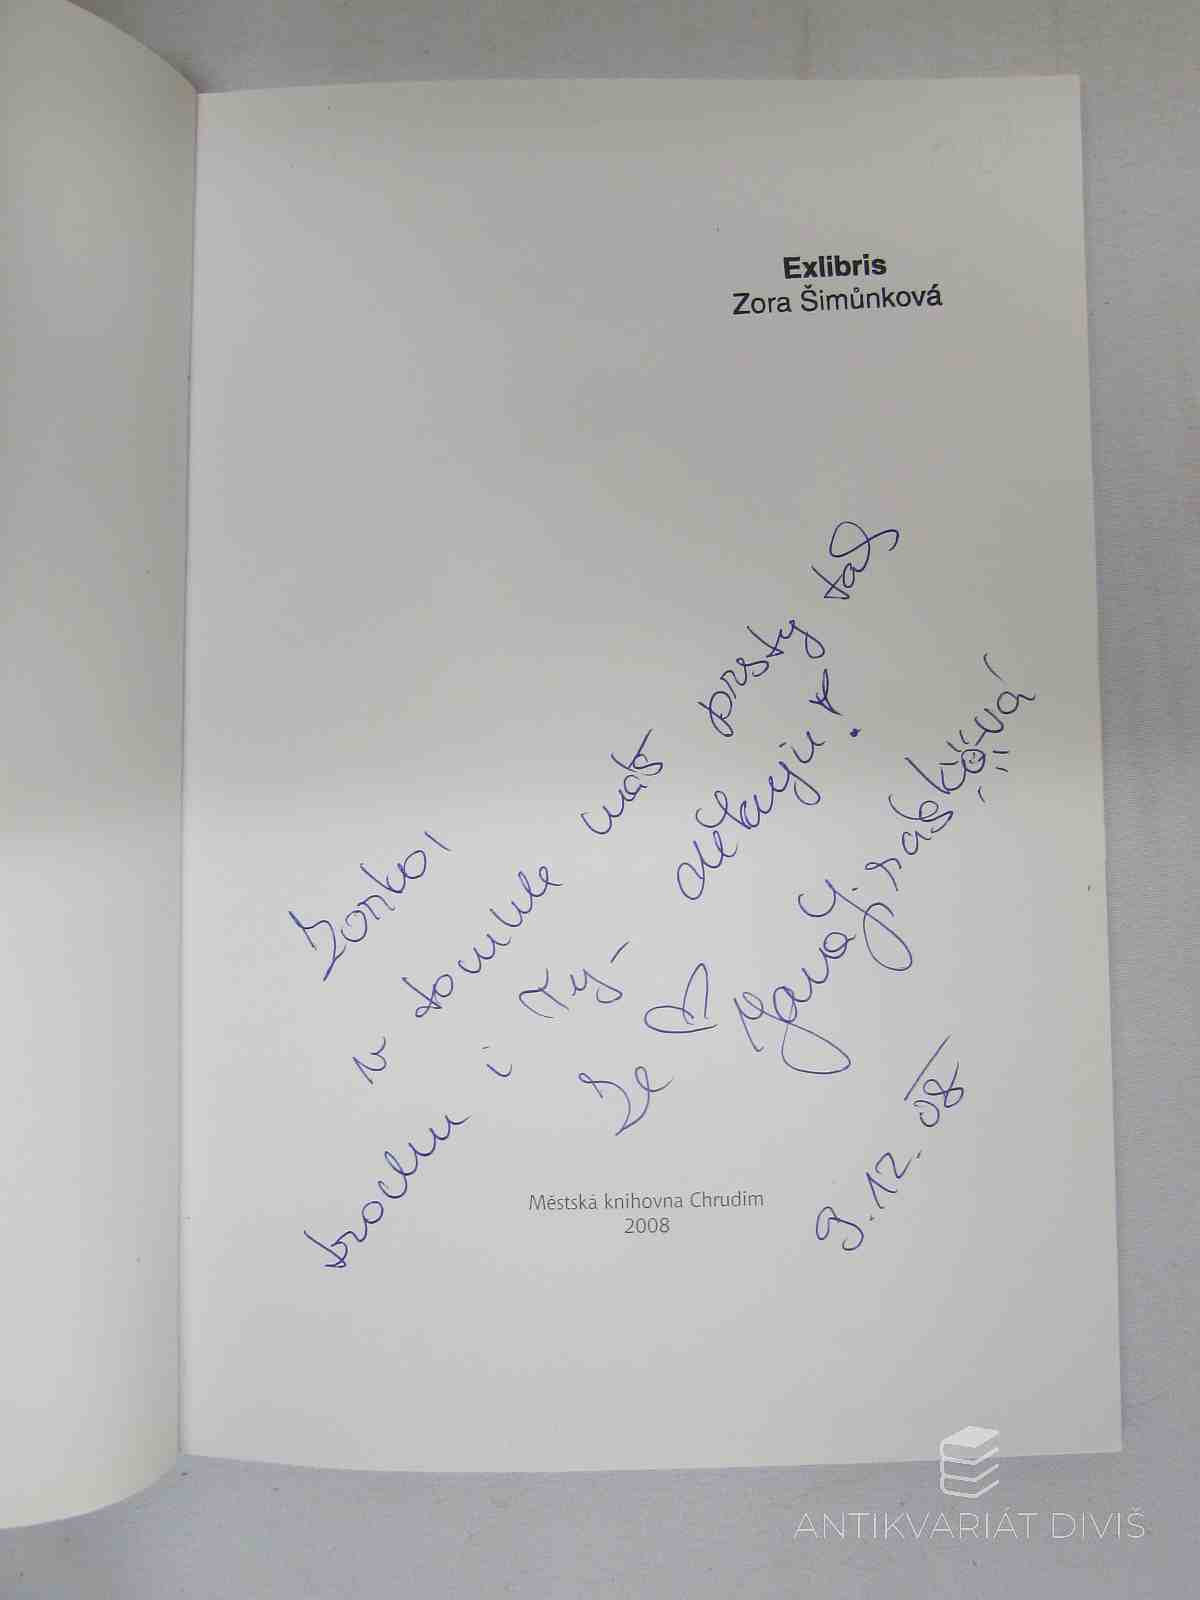 Exlibris
Zora Šimůnková
Zorko,
v tomhle máš prsty tak
trochu i Ty - děkuju!
Ze Jana
9. 12. 08
Městská knihovna Chrudim
2008
ANTIKVARIÁT DIVIŠ